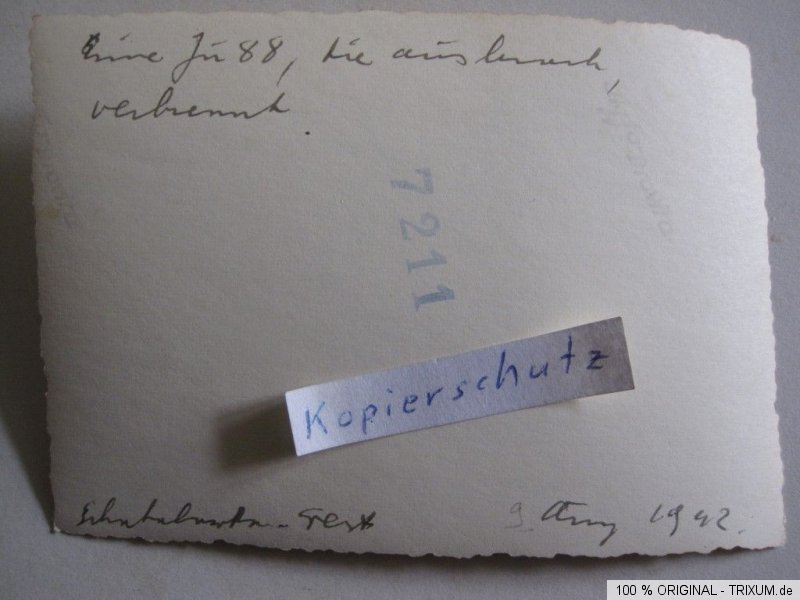 Eine Ju 88, die ausbrach,
verbrennt.
7211
Kopierschutz
9 Aug 1942.
100 % ORIGINAL - TRIXUM.de